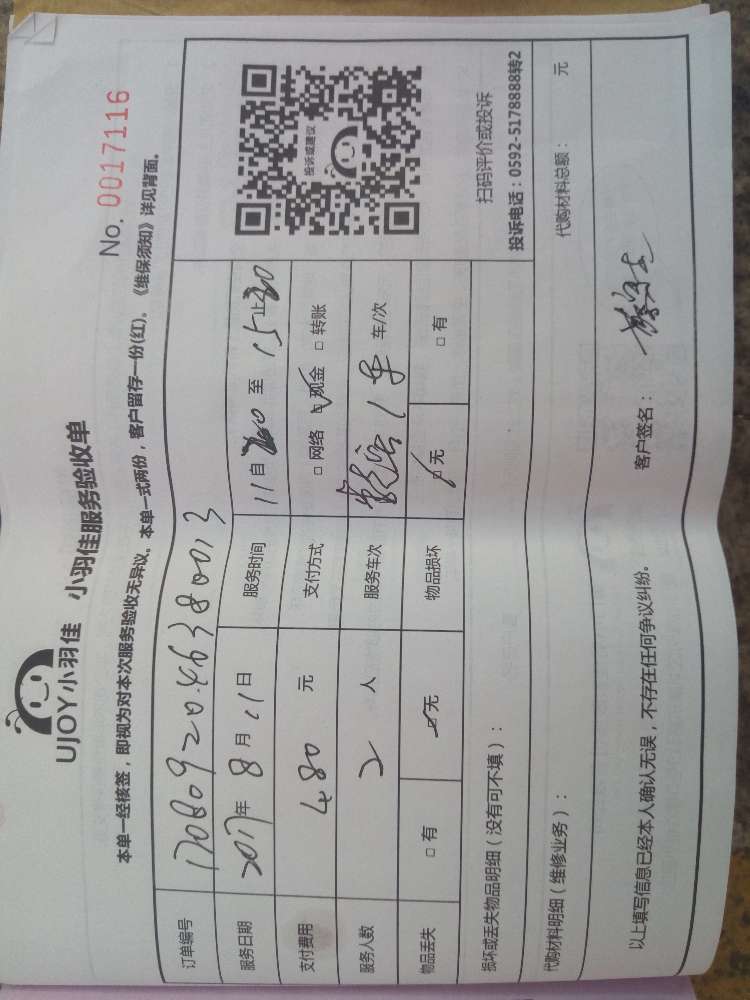 UJOY小羽佳 小羽佳服务验收单
No. 0017116
本单一经核签，即视为对本次服务验收无异议。本单一式两份，客户留存一份(红)。《维保须知》详见背面。
订单编号 1708092046380013
服务日期 2017年 8 月 11 日 服务时间 11自 至 15止30
支付费用 480 元 支付方式 □ 网络 ☑ 现金 □ 转账
服务人数 2 人 服务车次 1 车 车/次
物品丢失 □ 有 ☑ 无 物品损坏 ☑ 无 □ 有
投诉或建议
扫码评价或投诉
投诉电话：0592-5178888转2
损坏或丢失物品明细（没有可不填）：
代购材料明细（维修业务）： 代购材料总额： 元
以上填写信息已经本人确认无误，不存在任何争议纠纷。 客户签名：